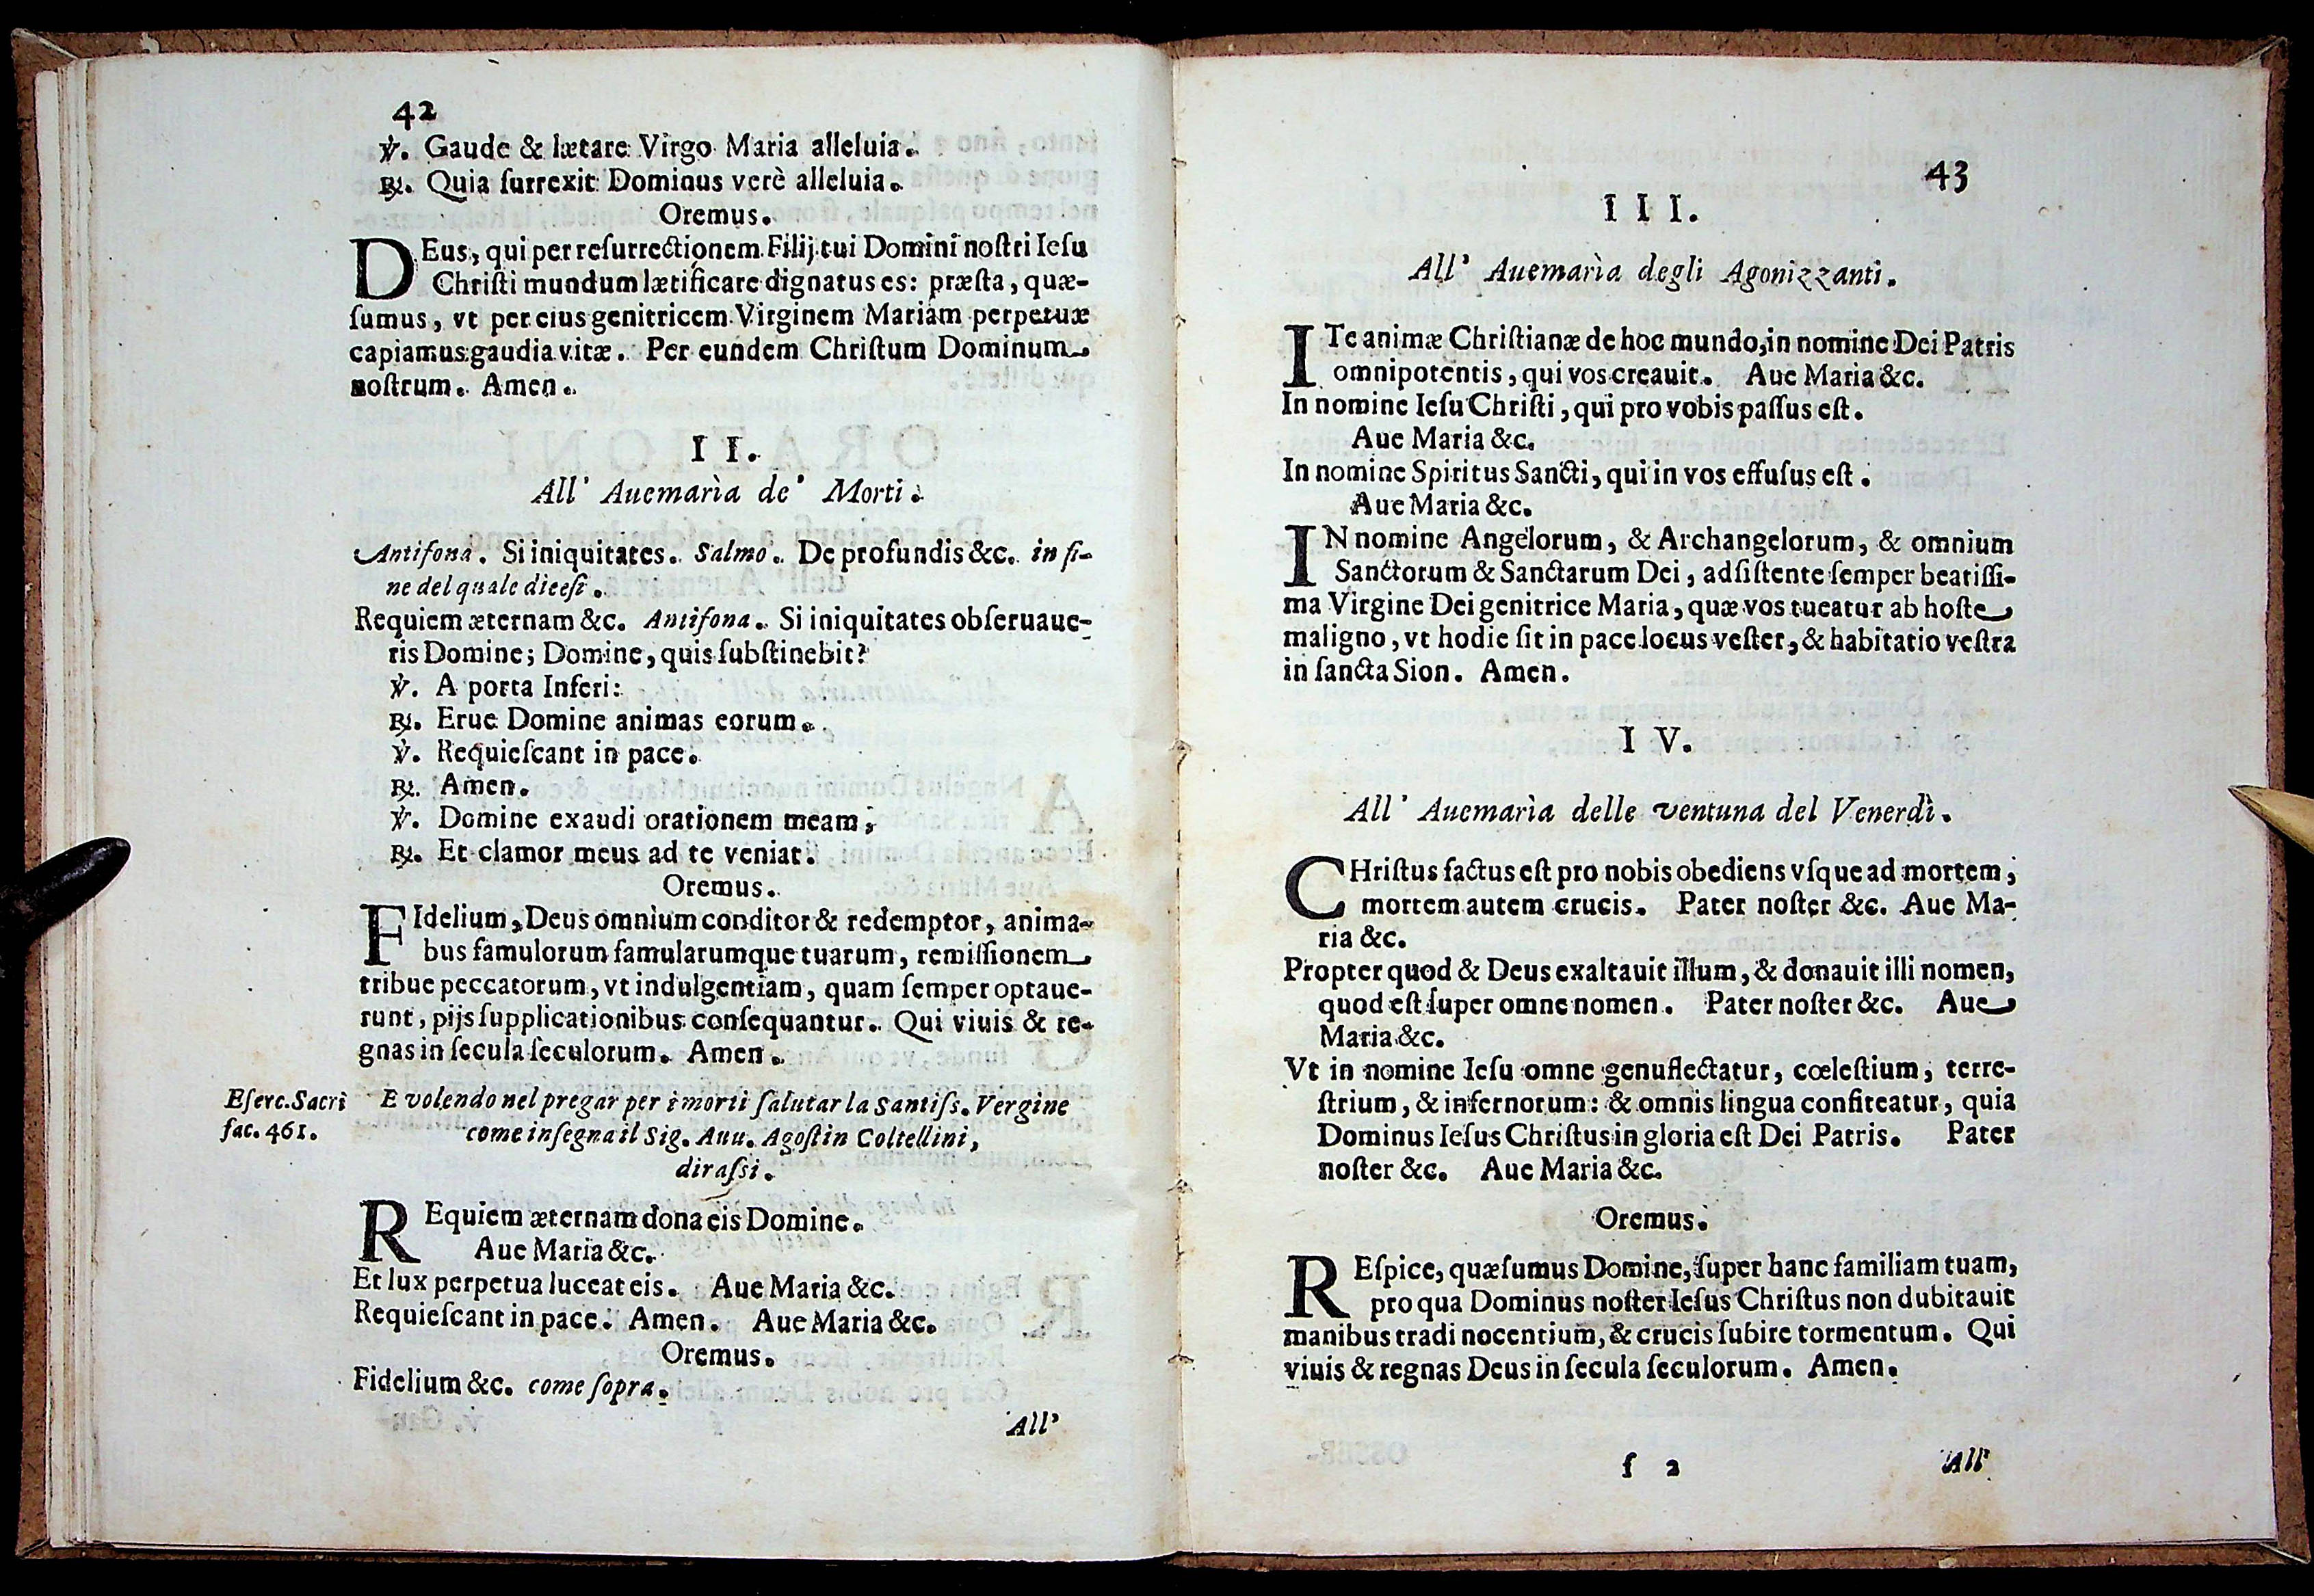 42
℣. Gaude & lætare Virgo Maria alleluia.
℟. Quia ſurrexit Dominus verè alleluia.
Oremus.
DEus, qui per reſurrectionem Filij tui Domini noſtri Ieſu
Chriſti mundum lætificare dignatus es: præſta, quæ-
ſumus, vt per eius genitricem Virginem Mariam perpetuæ
capiamus gaudia vitæ. Per eundem Chriſtum Dominum
noſtrum. Amen.
II.
All' Auemarìa de' Morti.
Antifona. Si iniquitates. Salmo. De profundis &c. in fi-
ne del quale diceſi.
Requiem æternam &c. Antifona. Si iniquitates obſeruaue-
ris Domine; Domine, quis ſubſtinebit?
℣. A porta Inferi:
℟. Erue Domine animas eorum.
℣. Requieſcant in pace.
℟. Amen.
℣. Domine exaudi orationem meam;
℟. Et clamor meus ad te veniat.
Oremus.
FIdelium, Deus omnium conditor & redemptor, anima-
bus famulorum famularumque tuarum, remiſſionem
tribue peccatorum, vt indulgentiam, quam ſemper optaue-
runt, pijs ſupplicationibus conſequantur. Qui viuis & re-
gnas in ſecula ſeculorum. Amen.
Eſerc. Sacri
fac. 461.
E volendo nel pregar per i morti ſalutar la Santiſs. Vergine
come inſegna il Sig. Auu. Agoſtin Coltellini,
diraſsi.
REquiem æternam dona eis Domine.
Aue Maria &c.
Et lux perpetua luceat eis. Aue Maria &c.
Requieſcant in pace. Amen. Aue Maria &c.
Oremus.
Fidelium &c. come ſopra.
All'
43
III.
All' Auemarìa degli Agonizzanti.
ITe animæ Chriſtianæ de hoc mundo, in nomine Dei Patris
omnipotentis, qui vos creauit. Aue Maria &c.
In nomine Ieſu Chriſti, qui pro vobis paſſus eſt.
Aue Maria &c.
In nomine Spiritus Sancti, qui in vos effuſus eſt.
Aue Maria &c.
IN nomine Angelorum, & Archangelorum, & omnium
Sanctorum & Sanctarum Dei, adſiſtente ſemper beatiſſi-
ma Virgine Dei genitrice Maria, quæ vos tueatur ab hoſte
maligno, vt hodie ſit in pace locus veſter, & habitatio veſtra
in ſancta Sion. Amen.
IV.
All' Auemarìa delle ventuna del Venerdì.
CHriſtus factus eſt pro nobis obediens vſque ad mortem,
mortem autem crucis. Pater noſter &c. Aue Ma-
ria &c.
Propter quod & Deus exaltauit illum, & donauit illi nomen,
quod eſt ſuper omne nomen. Pater noſter &c. Aue
Maria &c.
Vt in nomine Ieſu omne genuflectatur, cœleſtium, terre-
ſtrium, & infernorum: & omnis lingua confiteatur, quia
Dominus Ieſus Chriſtus in gloria eſt Dei Patris. Pater
noſter &c. Aue Maria &c.
Oremus.
REſpice, quæſumus Domine, ſuper hanc familiam tuam,
pro qua Dominus noſter Ieſus Chriſtus non dubitauit
manibus tradi nocentium, & crucis ſubire tormentum. Qui
viuis & regnas Deus in ſecula ſeculorum. Amen.
f 2
All'